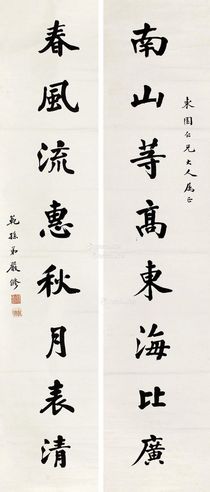 東園仁兄大人属正
南山等高東海比廣
春風流惠秋月表清
範孫弟嚴修